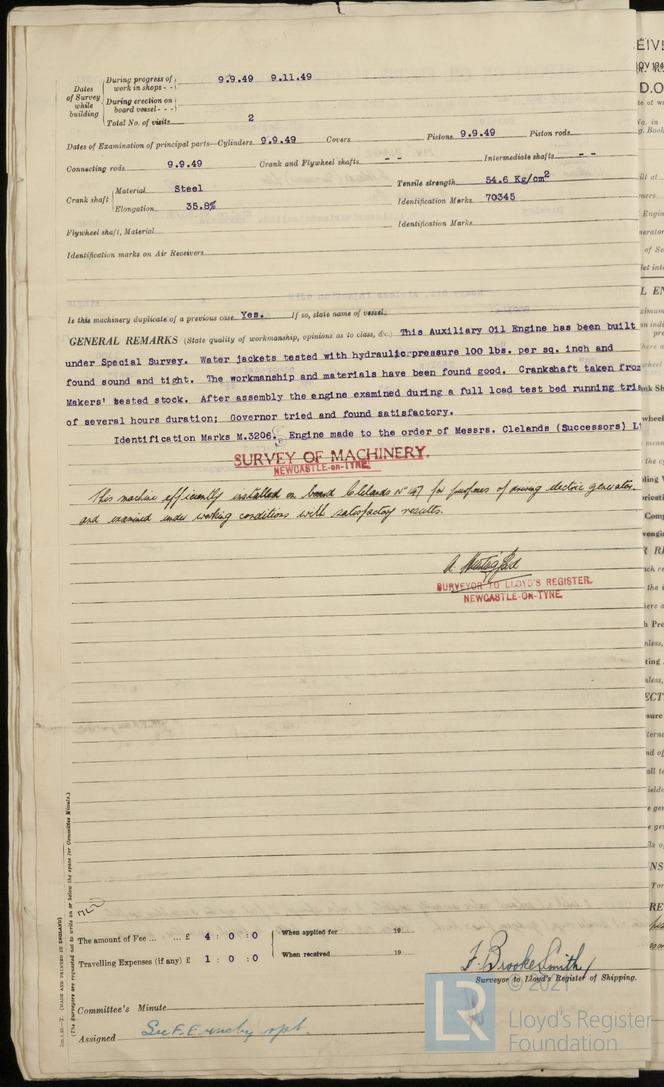 Dates of Survey while building
During progress of work in shops - - 9.9.49 9.11.49
During erection on board vessel - - -
Total No. of visits 2
Dates of Examination of principal parts—Cylinders 9.9.49 Covers Pistons 9.9.49 Piston rods
Connecting rods 9.9.49 Crank and Flywheel shafts - - Intermediate shafts - -
Crank shaft
Material Steel Tensile strength 54.6 Kg/cm2
Elongation 35.8% Identification Marks 70345
Flywheel shaft, Material Identification Marks
Identification marks on Air Receivers
Is this machinery duplicate of a previous case Yes. If so, state name of vessel
GENERAL REMARKS (State quality of workmanship, opinions as to class, &c.) This Auxiliary Oil Engine has been built
under Special Survey. Water jackets tested with hydraulic pressure 100 lbs. per sq. inch and
found sound and tight. The workmanship and materials have been found good. Crankshaft taken from
Makers' tested stock. After assembly the engine examined during a full load test bed running tri
of several hours duration; Governor tried and found satisfactory.
Identification Marks M.3206. Engine made to the order of Messrs. Clelands (Successors) Lt
SURVEY OF MACHINERY.
NEWCASTLE-on-TYNE.
This machine efficiently installed on board Clelands No 147 for purposes of driving electric generator
and examined under working conditions with satisfactory results.
SURVEYOR TO LLOYD'S REGISTER.
NEWCASTLE-ON-TYNE
The amount of Fee ... ... £ 4 : 0 : 0 When applied for 19
Travelling Expenses (if any) £ 1 : 0 : 0 When received 19
F. Brooke Smith
Surveyor to Lloyd's Register of Shipping.
Committee's Minute
Assigned See F.E. mchy rpt.
(MADE AND PRINTED IN ENGLAND)
(The Surveyors are requested not to write on or below the space for Committee Minute.)
LR
© 2021
Lloyd's Register
Foundation